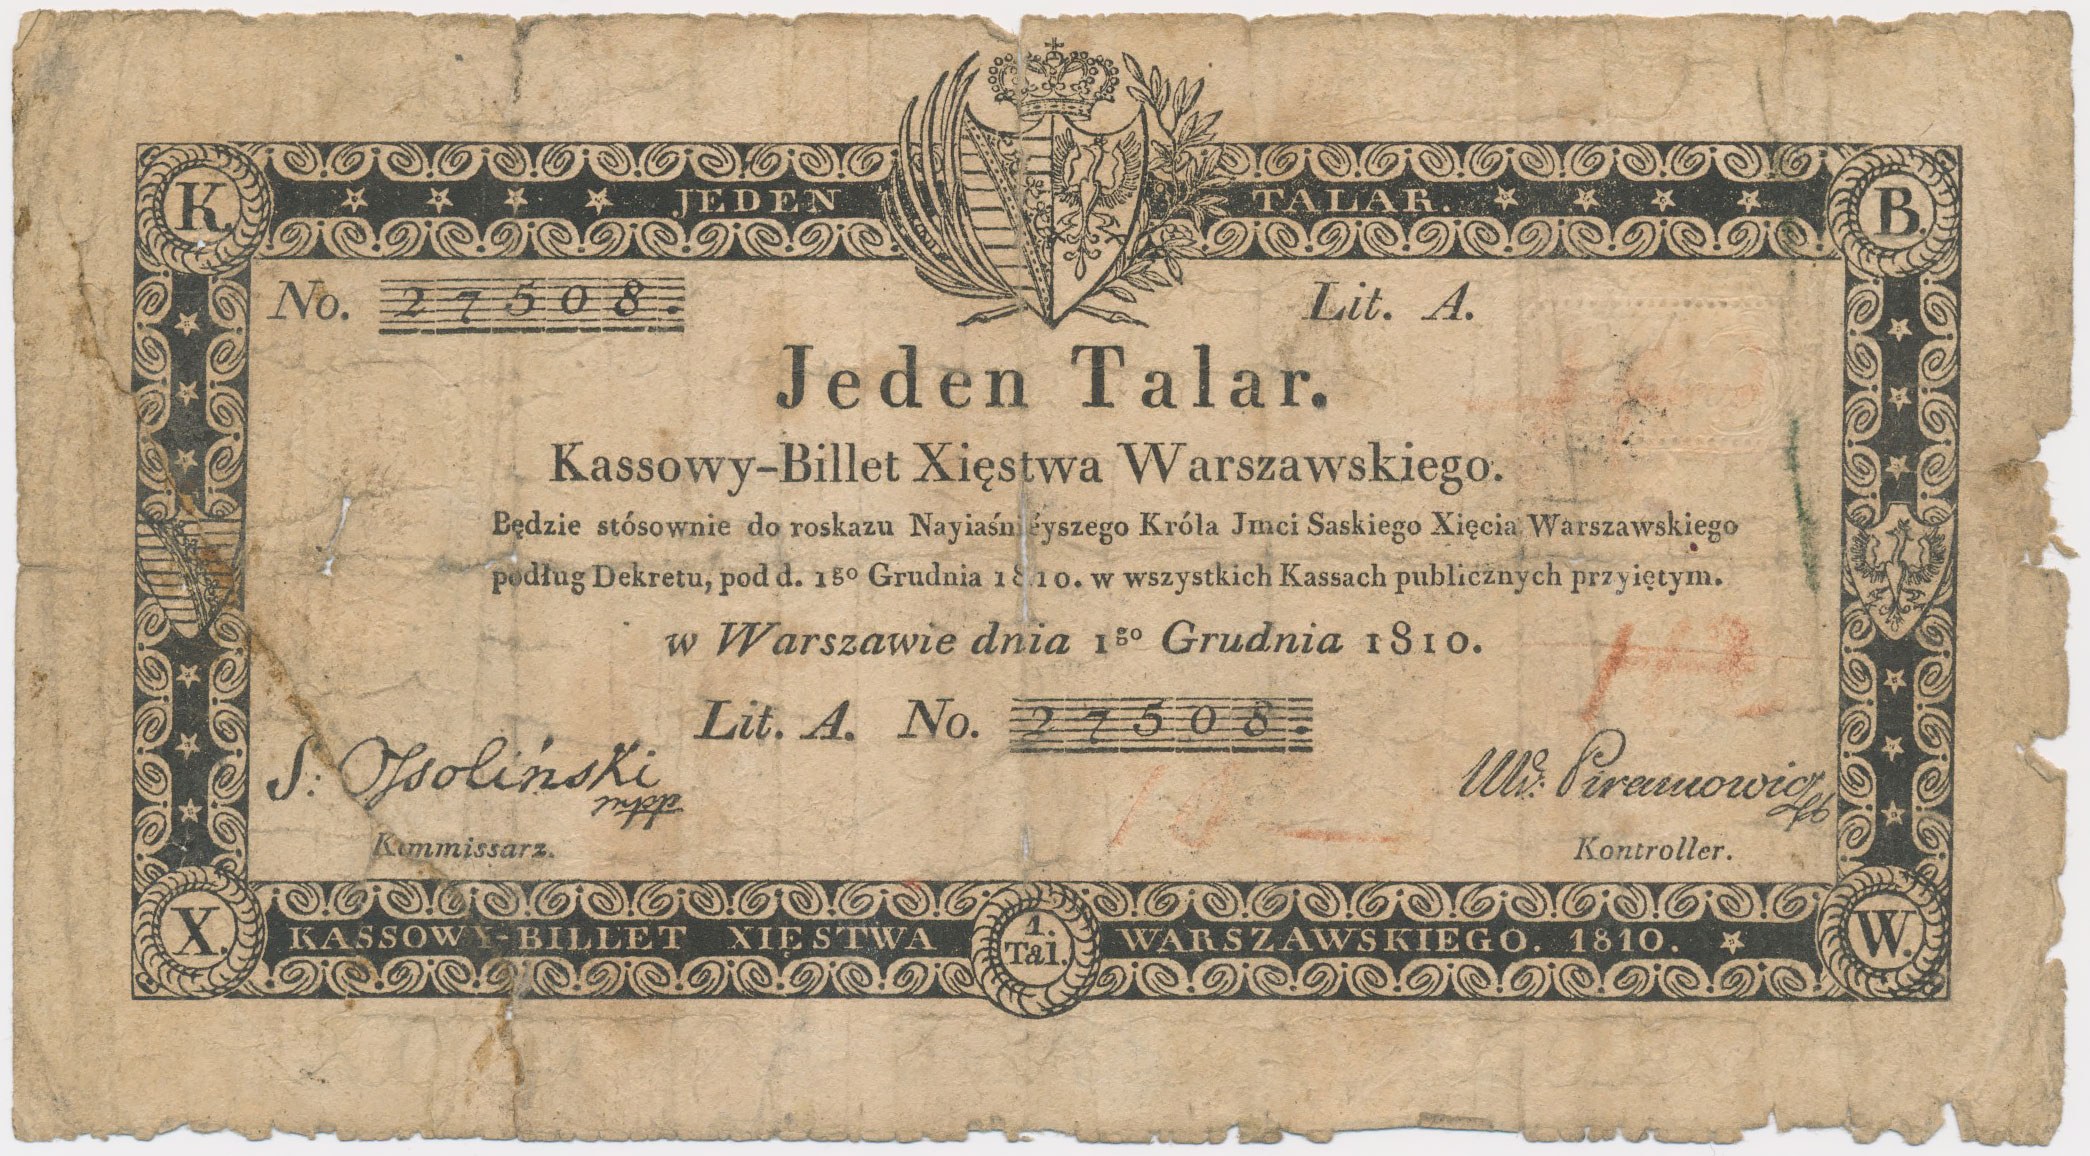 K. JEDEN TALAR. B.
No. 27508. Lit. A.
Jeden Talar.
Kassowy-Billet Xięstwa Warszawskiego.
Będzie stósownie do roskazu Nayiaśnieyszego Króla Jmci Saskiego Xięcia Warszawskiego
podług Dekretu, pod d. 1go Grudnia 1810. w wszystkich Kassach publicznych przyiętym.
w Warszawie dnia 1go Grudnia 1810.
Lit. A. No. 27508.
S: Ossoliński
mpp
Kommissarz.
Kontroller.
X. KASSOWY-BILLET XIĘSTWA 1. Tal. WARSZAWSKIEGO. 1810. W.